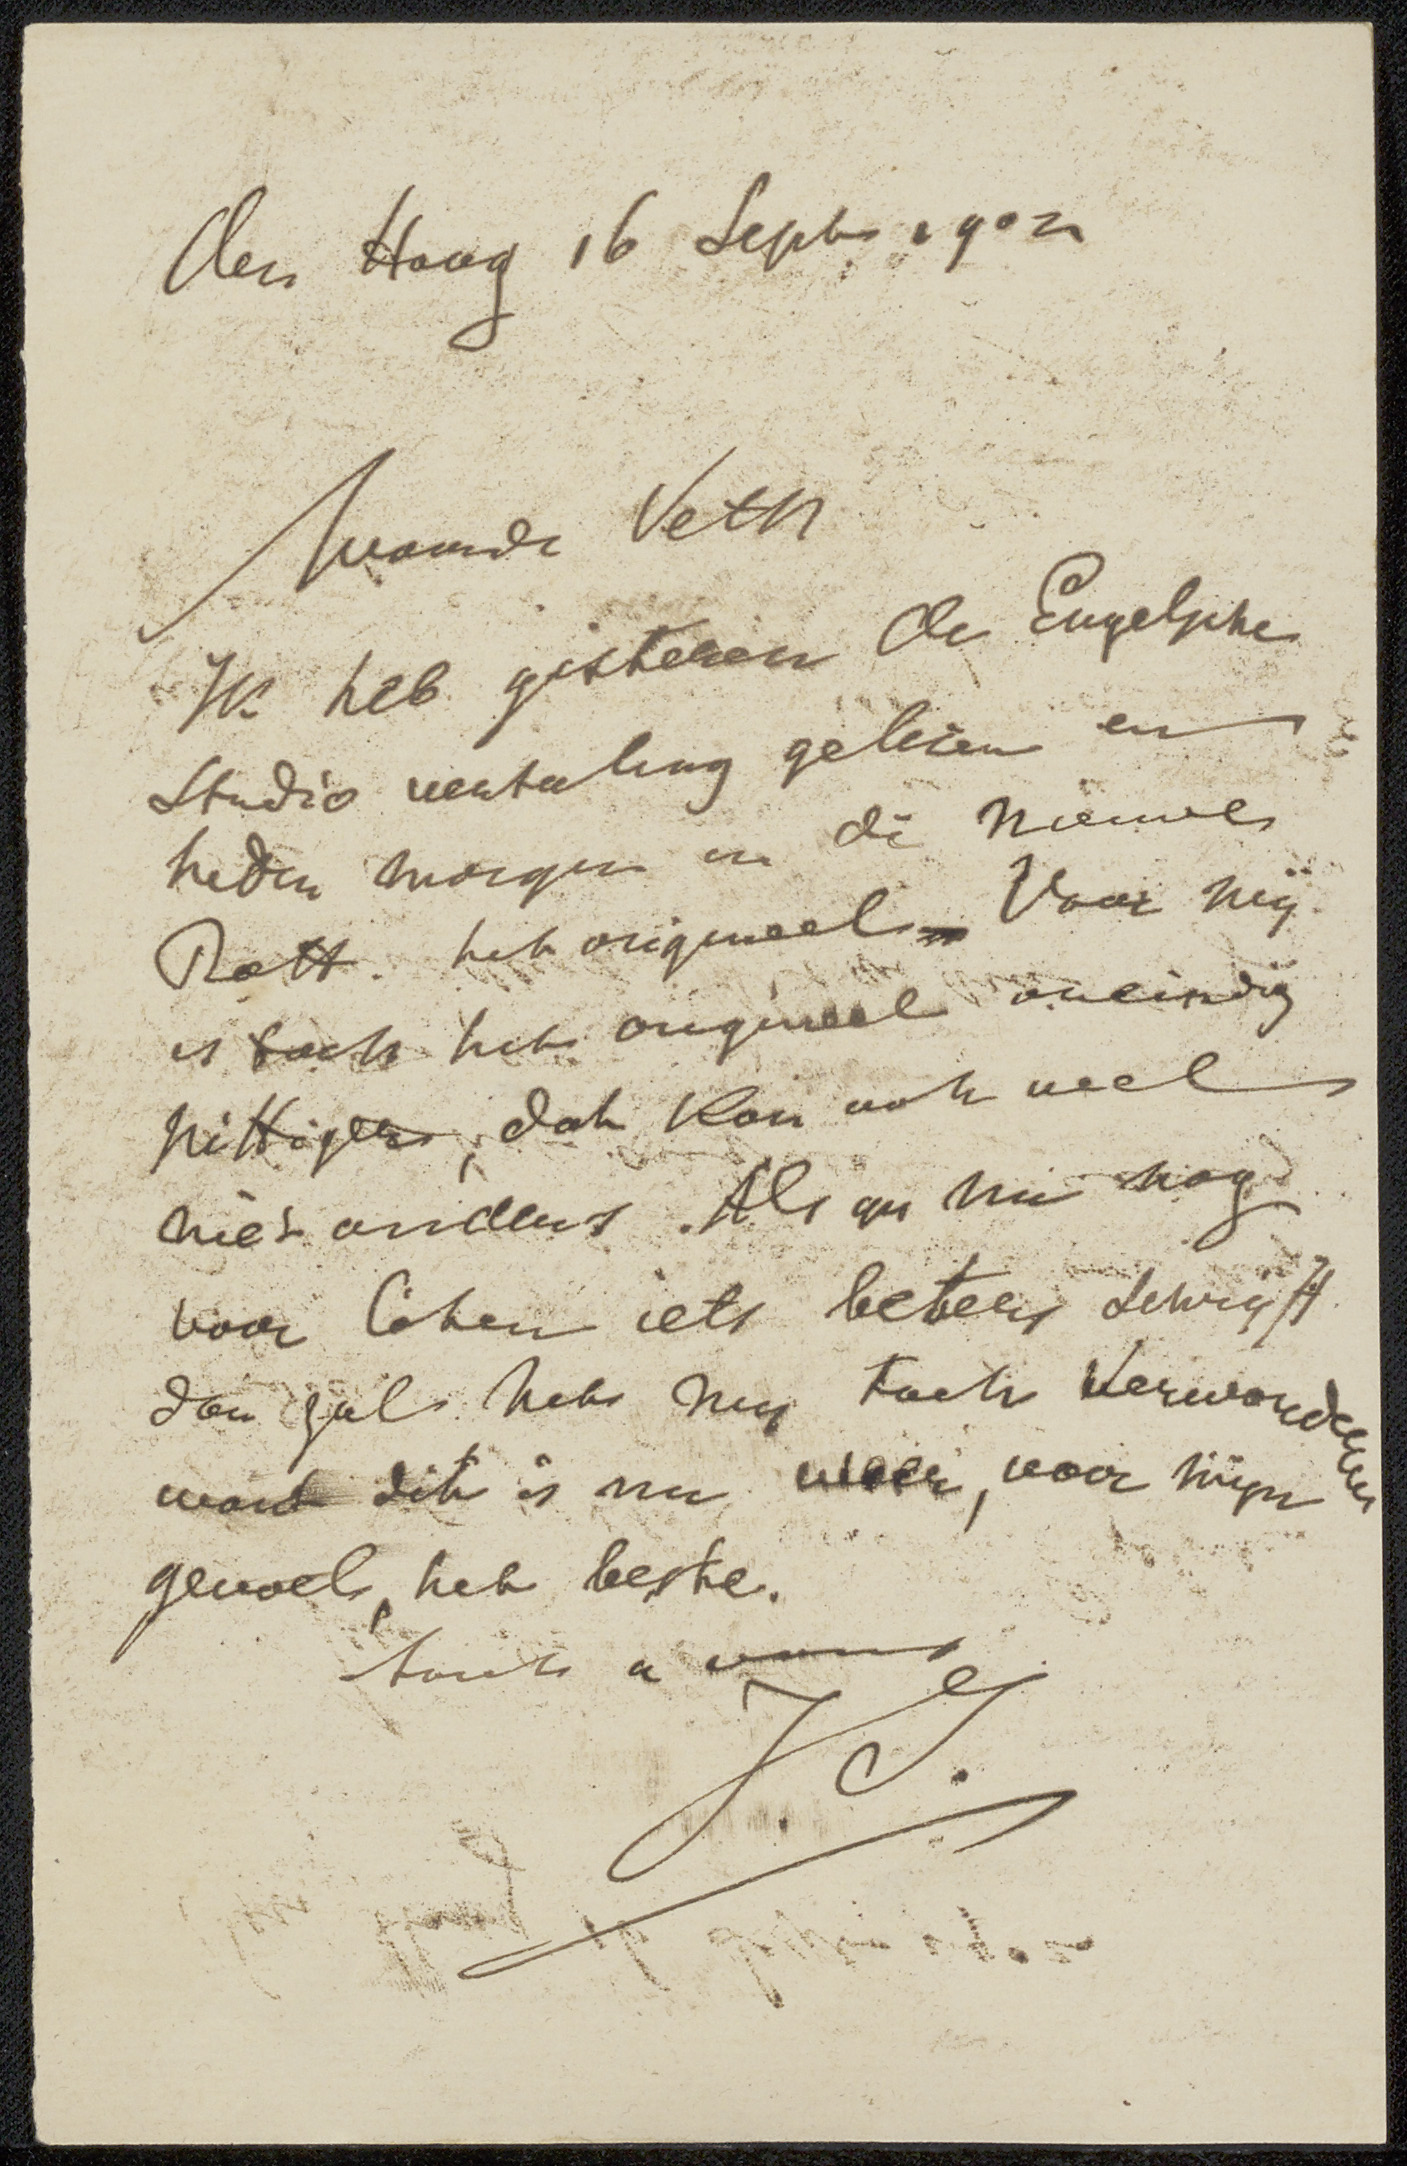 den Haag 16 Sept. 1902
Waarde Veth
Ik heb gisteren de Engelsche
Studio vertaling gelezen en
heden morgen in de nieuwe
Rott. het origineel. Voor mij
is toch het origineel oneindig
pittiger, dat kan ook wel
niet anders. Als gij nu nog
voor Cohen iets beters schrijft
dan zal het mij toch verwonderen
want dit is nu weer, voor mijn
gevoel, het beste.
tout à vous